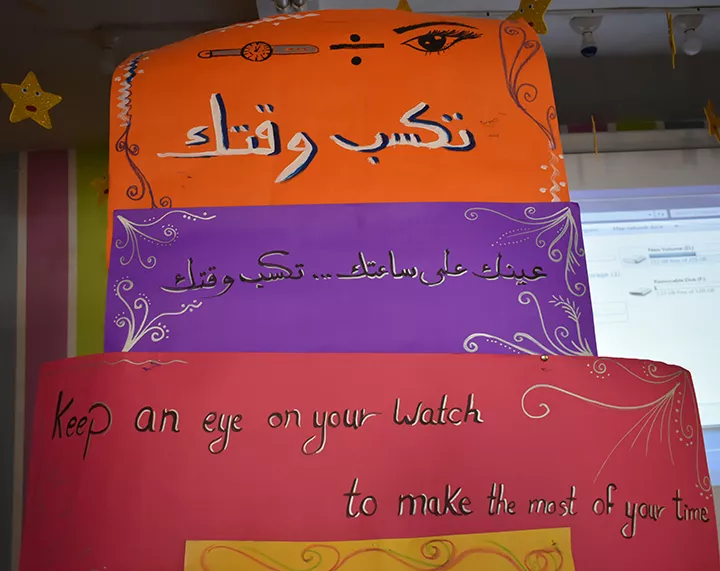 تكسب وقتك
عينك على ساعتك ... تكسب وقتك
Keep an eye on your watch
to make the most of your time